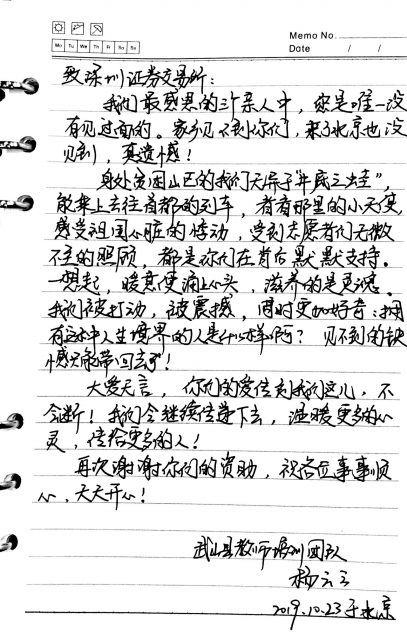 Memo No.
Mo Tu We Th Fr Sa Su
Date / /
致深圳证券交易所：
我们最感恩的三个亲人中，您是唯一没
有见过面的。家乡见不到你们，来了北京也没
见到，真遗憾！
身处贫困山区的我们无异于“井底之蛙”，
能乘上去往首都的列车，看看那里的小天使，
感受祖国心脏的悸动，受到志愿者们无微
不至的照顾，都是你们在背后默默支持。
一想起，暖意便涌上心头，滋养的是灵魂。
我们被打动，被震撼，同时更加好奇：拥
有这种人生境界的人是什么样啊？见不到的缺
憾只能带回去了！
大爱无言，你们的爱传到我们这儿，不
会断！我们会继续传递下去，温暖更多的心
灵，传给更多的人！
再次谢谢你们的资助，祝各位事事顺
心，天天开心！
武山县教师培训团队
杨云云
2019.10.23于北京